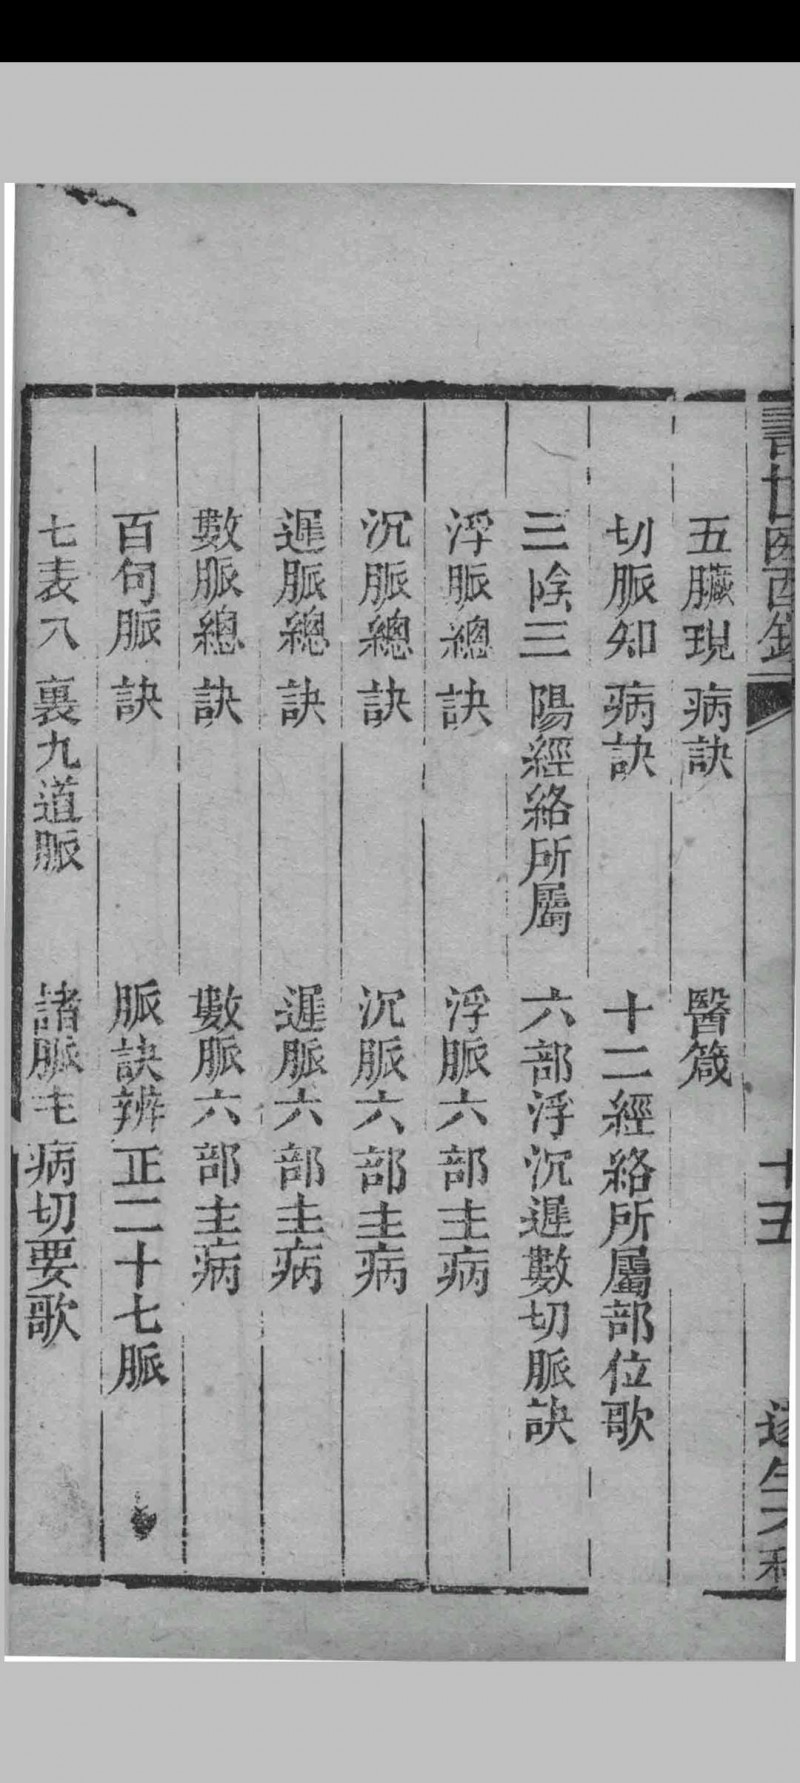 五臟現病訣　醫箴
切脈知病訣　十二經絡所屬部位歌
三陰三陽經絡所屬　六部浮沉遲數切脈訣
浮脈總訣　浮脈六部主病
沉脈總訣　沉脈六部主病
遲脈總訣　遲脈六部主病
數脈總訣　數脈六部主病
百句脈訣　脈訣辨正二十七脈
七表八裏九道脈　諸脈主病切要歌
十五